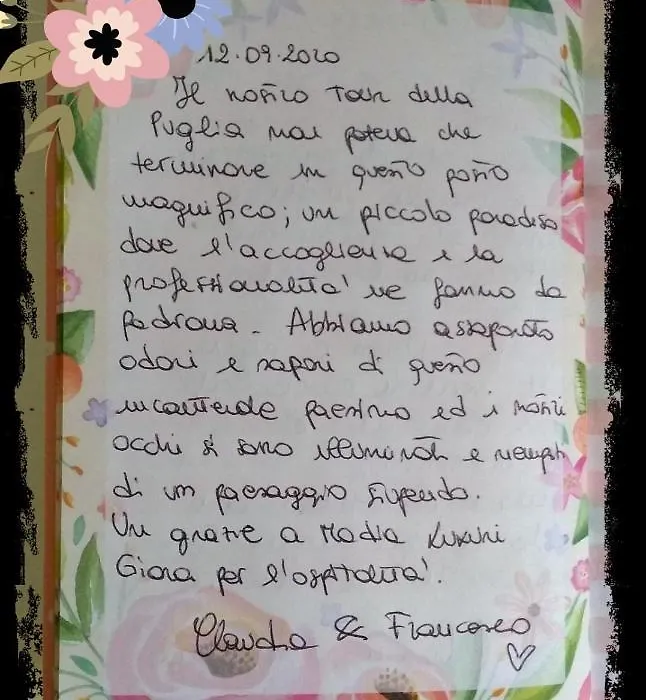 12.09.2020
Il nostro Tour della
Puglia non poteva che
terminare in questo posto
magnifico; un piccolo paradiso
dove l'accoglienza e la
professionalità ne fanno da
padrona. Abbiamo assaporato
odori e sapori di questo
incantevole paesino ed i nostri
occhi si sono illuminati e riempiti
di un paesaggio stupendo.
Un grazie a
Gioia per l'ospitalità.
Claudia & Francesco